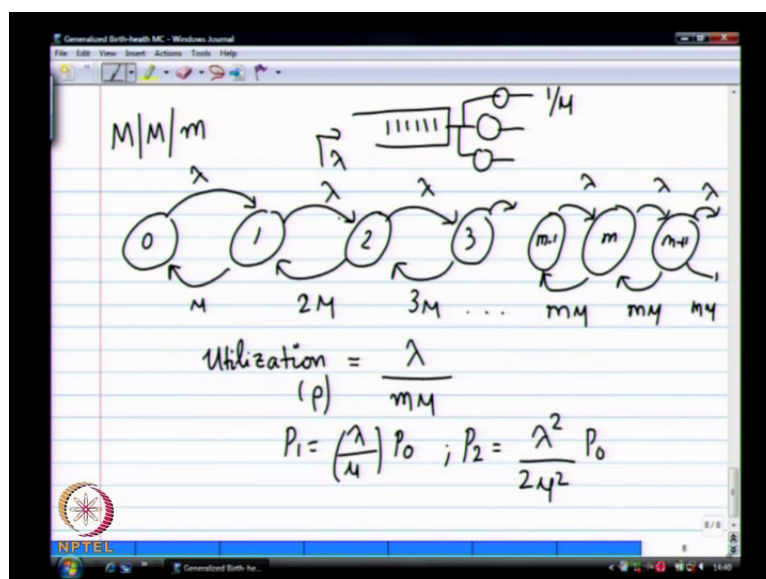 Generalized Birth-heath MC - Windows Journal
File Edit View Insert Actions Tools Help
M|M|m
λ
1/μ
λ λ λ λ λ λ
0 1 2 3 m-1 m m+1
μ 2μ 3μ ... mμ mμ mμ
Utilization = λ / mμ
(ρ)
P₁ = (λ/μ) P₀ ; P₂ = λ² / 2μ² P₀
8/8
8
NPTEL
Generalized Birth-he...
14:40